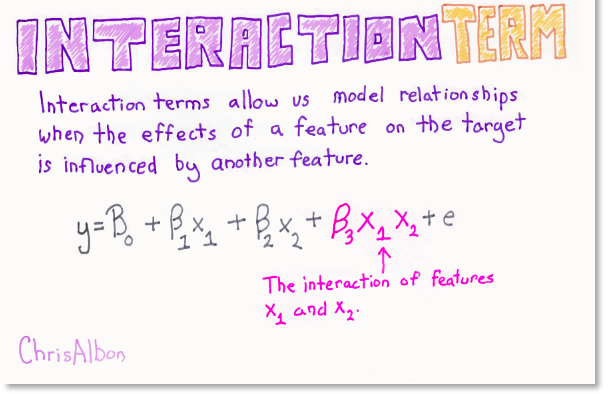 INTERACTION TERM
Interaction terms allow us model relationships
when the effects of a feature on the target
is influenced by another feature.
y=β₀ + β₁x₁ + β₂x₂ + β₃x₁x₂ + e
↑
The interaction of features
x₁ and x₂.
ChrisAlbon